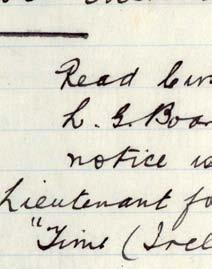 Read
L. G. Boar
notice is
Lieutenant fo
"Time (Irel